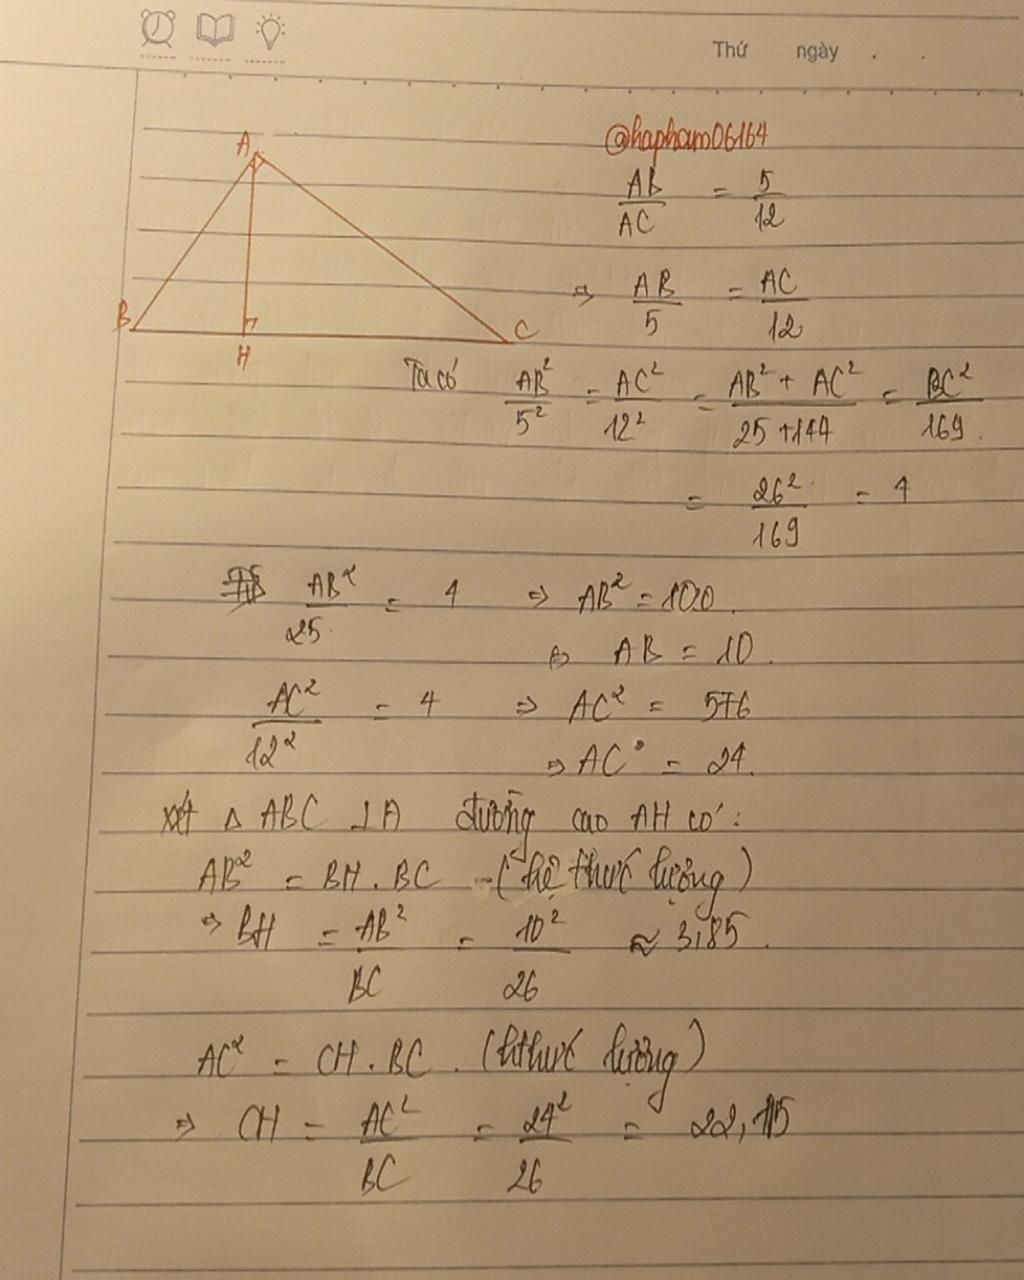 Thứ ngày . .
@hapham06164
A
B
H
C
AB/AC = 5/12
⇒ AB/5 = AC/12
Ta có AB²/5² = AC²/12² = AB² + AC²/25 + 144 = BC²/169.
= 26²/169 = 4
AB²/25 = 4 ⇒ AB² = 100.
⇔ AB = 10.
AC²/12² = 4 ⇒ AC² = 576
⇒ AC = 24.
xét △ ABC ⊥ A đường cao AH có :
AB² = BH . BC (hệ thức lượng)
⇒ BH = AB²/BC = 10²/26 ≈ 3,85.
AC² = CH . BC . (hthức lượng)
⇒ CH = AC²/BC = 24²/26 = 22,15